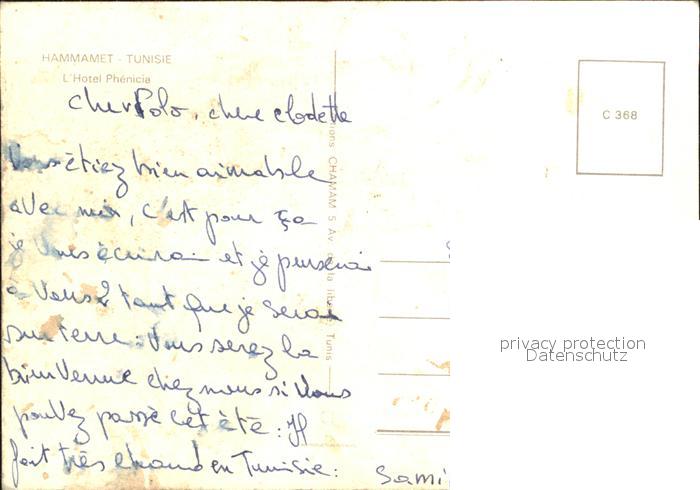 HAMMAMET - TUNISIE
L'Hotel Phénicia
cher Polo, chere clodette
Vous étiez bien aimable
avec moi, c'est pour ça
je vous écrirai et je penserai
à Vous 2 tant que je serai
sur terre. Vous serez la
bienvenue chez nous si Vous
pouvez passé cet été : Il
fait très chaud en Tunisie :
Sami
CHAMAM 5 Av. de la liberté, Tunis
C 368
privacy protection
Datenschutz